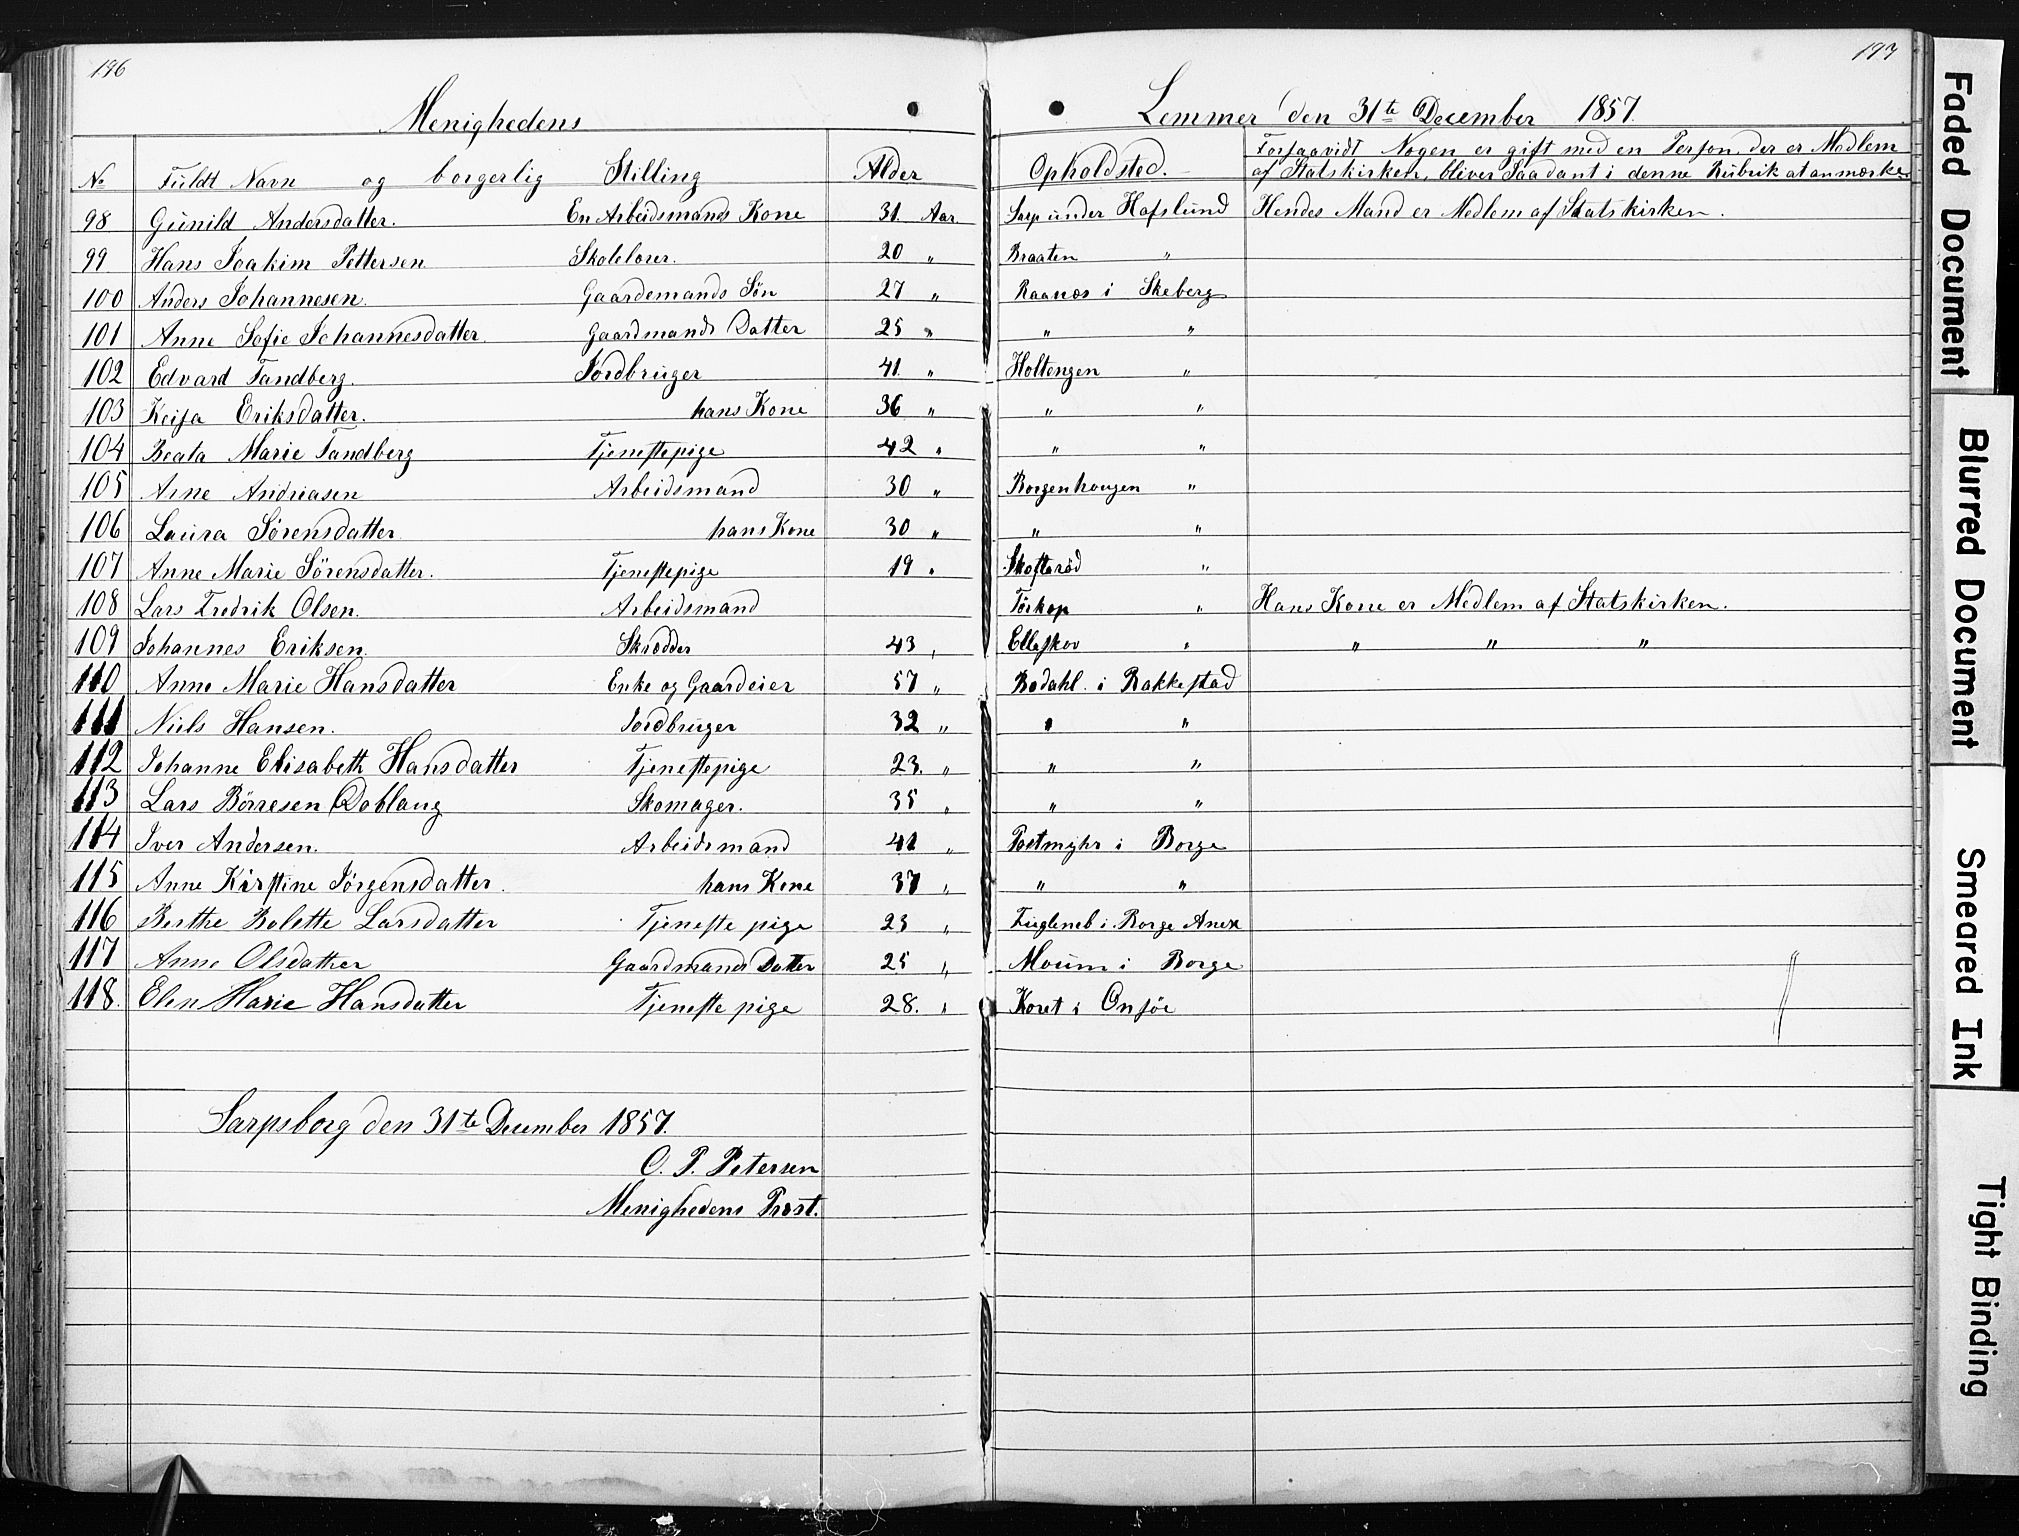 196
197
Menighedens Lemmer den 31te December 1857.
No Fuldt Navn og borgerlig Stilling Alder Opholdsted. Forsaavidt Nogen er gift med en Person, der er Medlem
af Statskirken, bliver Saadant i denne Rubrik at anmærke
98 Gunild Andersdatter. En Arbeidsmands Kone 31. Aar. Sarp under Hafslund Hendes Mand er Medlem af Statskirken.
99 Hans Joakim Pettersen Skolelærer. 20 " Braaten "
100 Anders Johannesen. Gaardemands Søn 27 " Raanæs i Skeberg
101 Anne Sofie Johannesdatter Gaardmands Datter 25 " " "
102 Edvard Tandberg. Jordbruger 41. " Holtengen "
103 Keisa Eriksdatter. hans Kone 36 " " "
104 Beata Marie Tandberg Tjenestepige 42 " " "
105 Arne Andreasen Arbeidsmand 30 " Borgenhougen "
106 Laura Sørensdatter hans Kone 30 " " "
107 Anne Marie Sørensdatter. Tjenestepige 19 " Skofterød "
108 Lars Fredrik Olsen. Arbeidsmand Torkop " Hans Kone er Medlem af Statskirken.
109 Johannes Eriksen. Skrædder 43 " Elleskov " " " "
110 Anne Marie Hansdatter Enke og Gaardeier 57 " Bodahl. i Rakkestad
111 Niels Hansen. Jordbruger 32 " " "
112 Johanne Elisabeth Hansdatter Tjenestepige 23. " " "
113 Lars Börresen Doblaug Skomager. 35 " " "
114 Iver Andersen. Arbeidsmand 41 " Postmyhr i Borge
115 Anne Kirstine Jörgensdatter. hans Kone 37 " " "
116 Berthe Bolette Larsdatter Tjeneste pige 23 " Fugleneb i Borge Anex
117 Anne Olsdatter Gaardmands Datter 25 " Moum i Borge
118. Elen Marie Hansdatter Tjeneste pige 28. " Koret i Onsöe
Sarpsborg den 31te December 1857.
O. P. Petersen
Menighedens Præst.
Faded Document
Blurred Document
Smeared Ink
Tight Binding